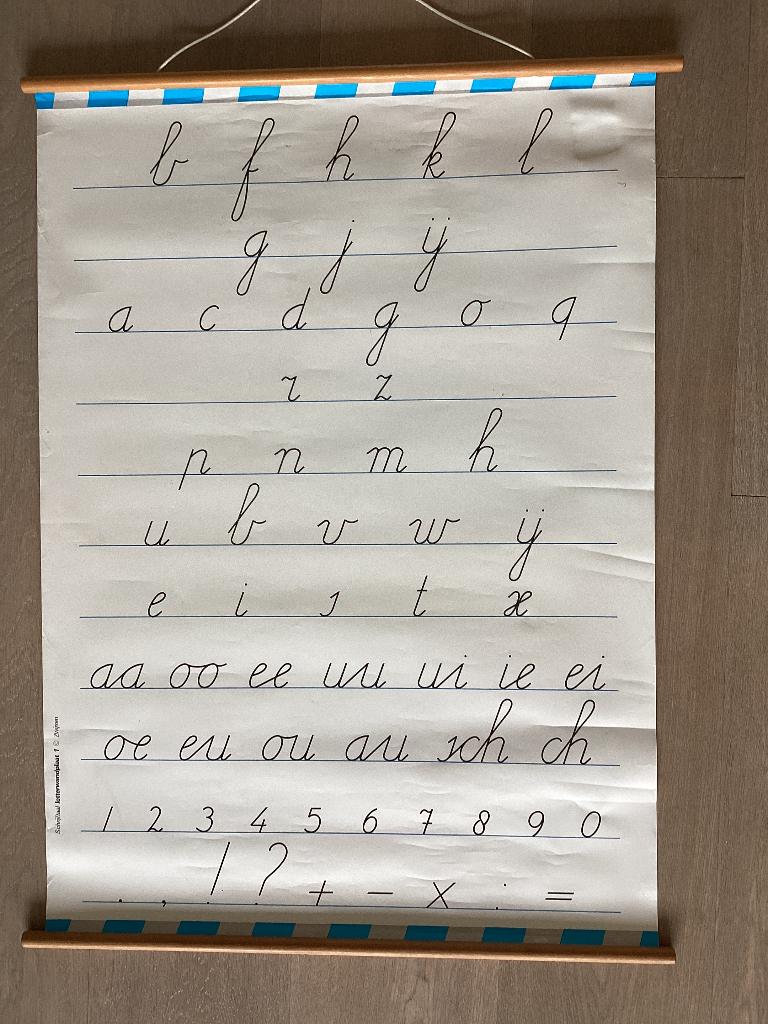 b f h k l
g j ij
a c d g o q
r z
p n m h
u b v w ij
e i s t x
aa oo ee uu ui ie ei
oe eu ou au sch ch
1 2 3 4 5 6 7 8 9 0
. , ! ? + - x : =
Schrijftaal letterwandplaat 1 © Zwijsen